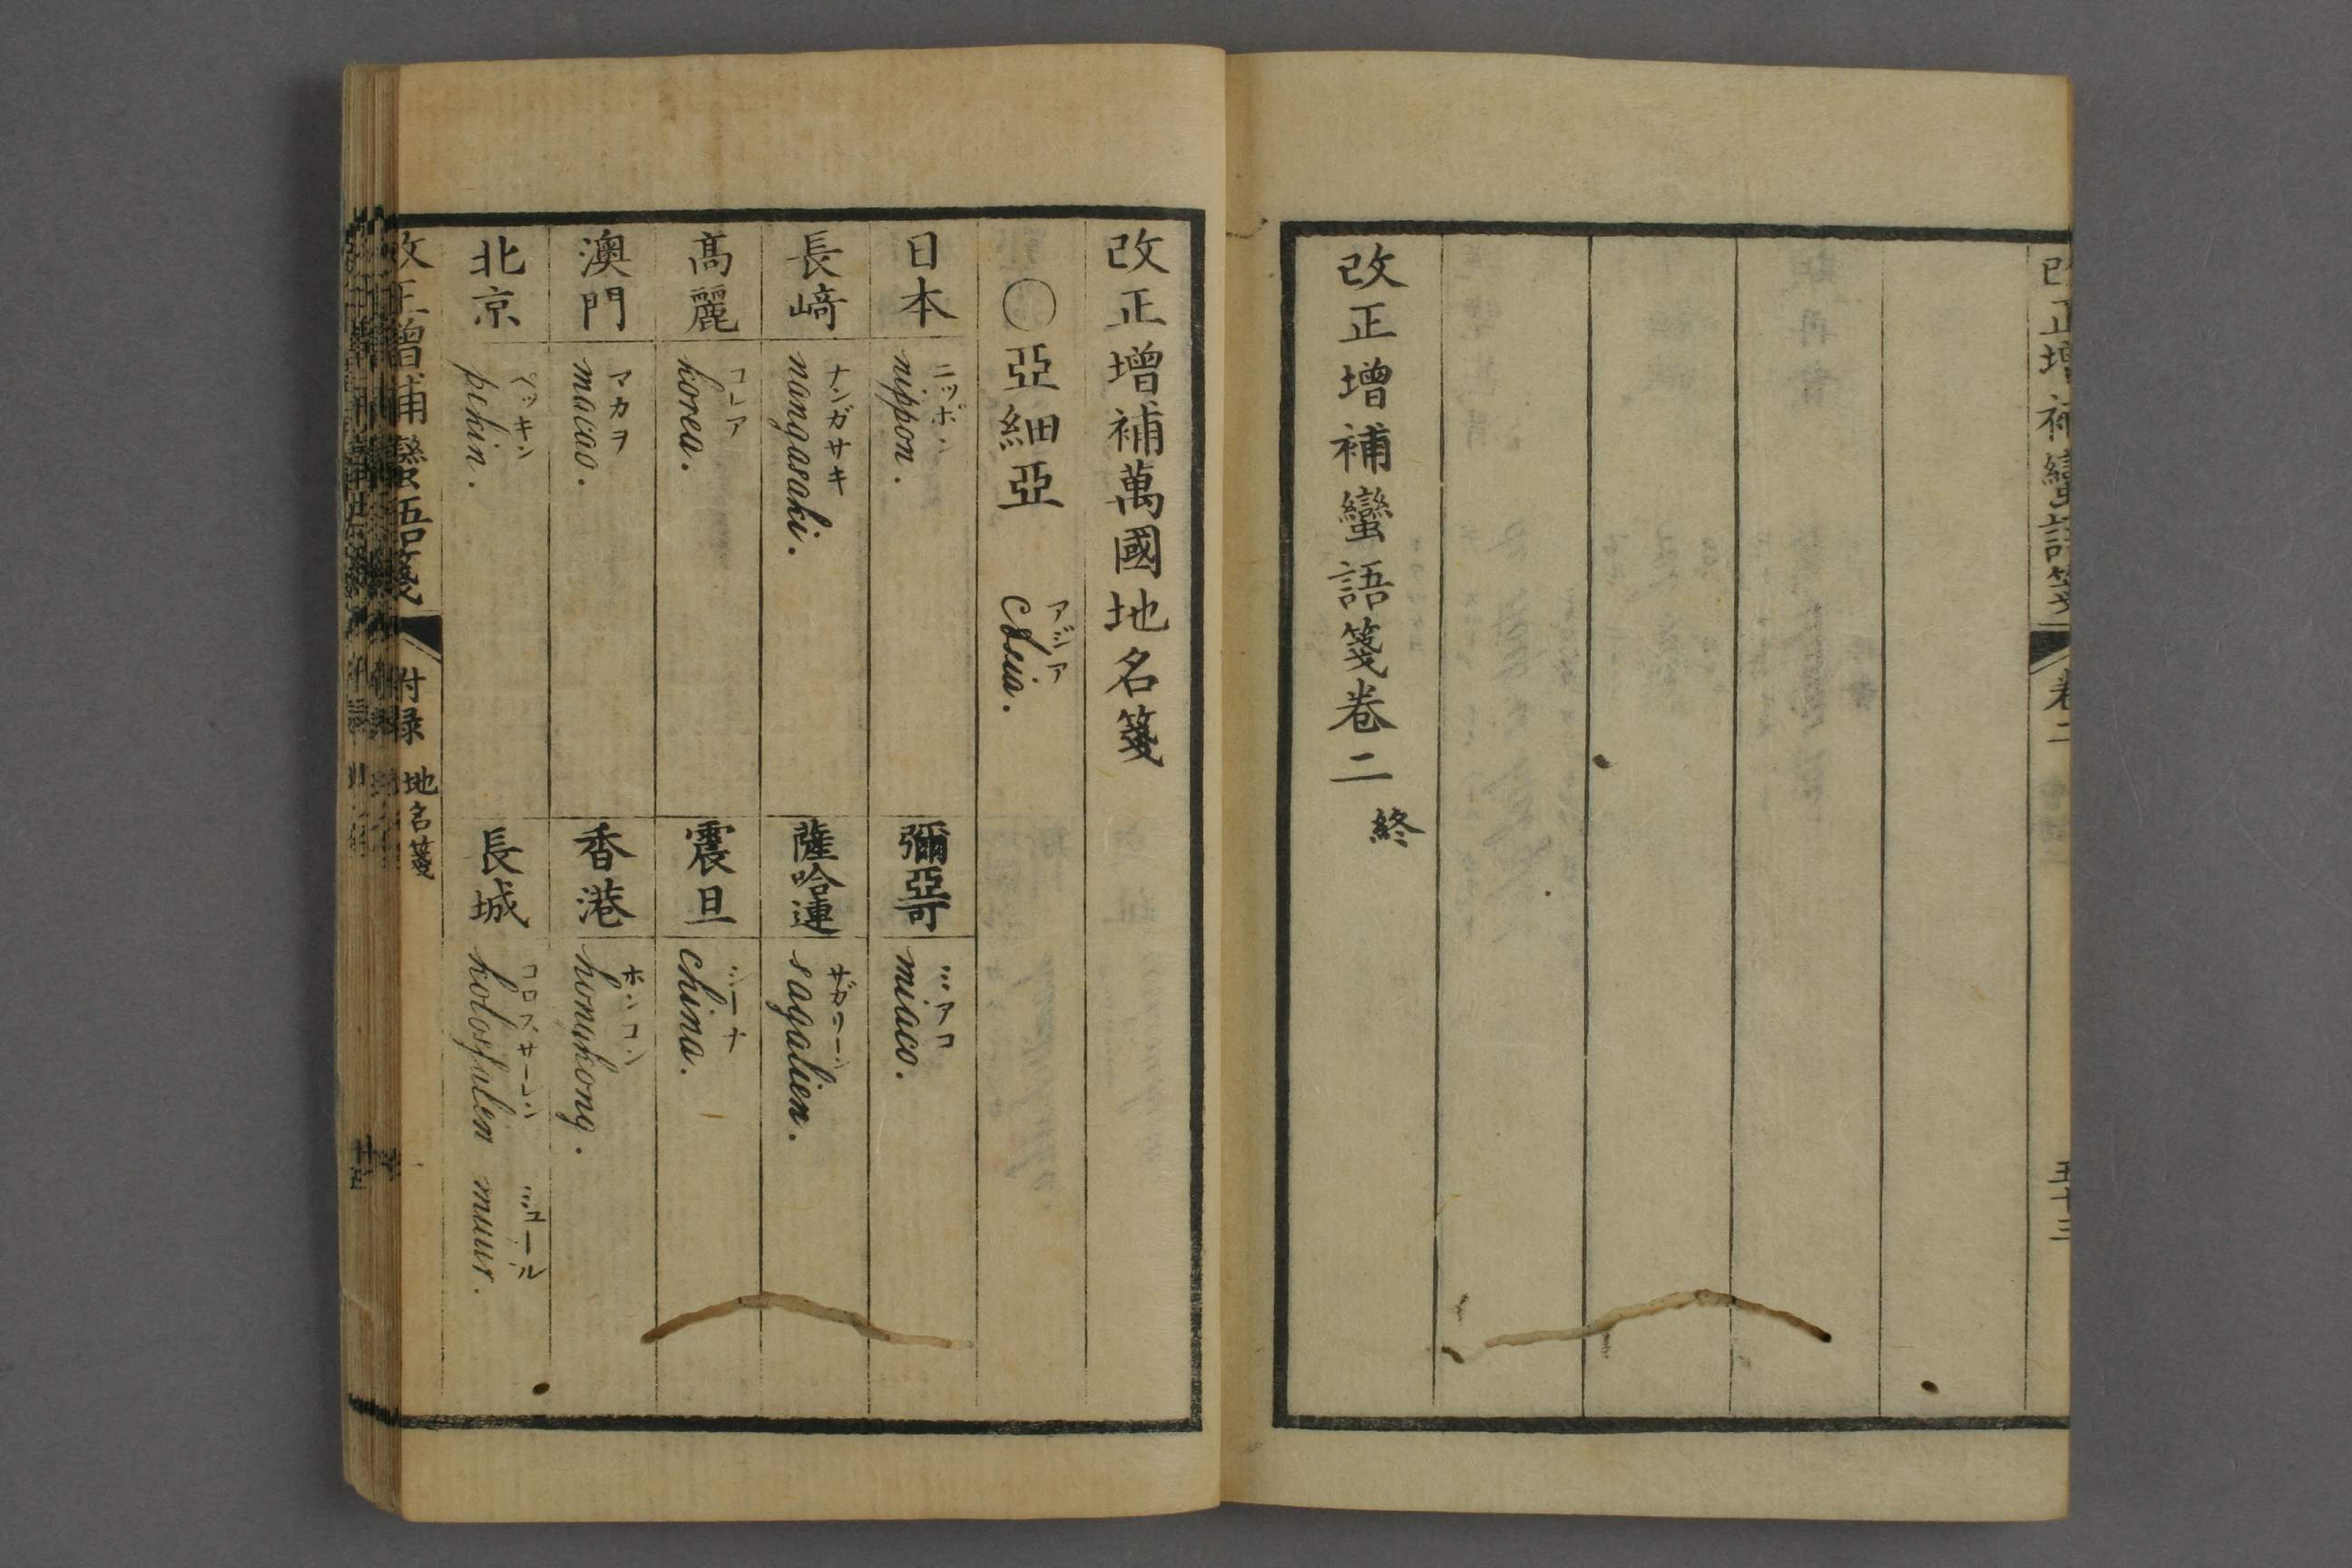 改正增補蠻語箋 卷二 五十三
改正增補蠻語箋卷二 終
改正增補萬國地名箋
○亞細亞 アジア
日本 ニッポン nippon.
彌亞可 ミアコ miaco.
長崎 ナンガサキ nangasaki.
薩哈連 サガリーン sagalien.
高麗 コレア korea.
震旦 シーナ china.
澳門 マカヲ macao.
香港 ホンコン
北京 ペッキン pekin.
長城 コロスサーレン ミュール muur.
改正增補蠻語箋 附録 地名箋